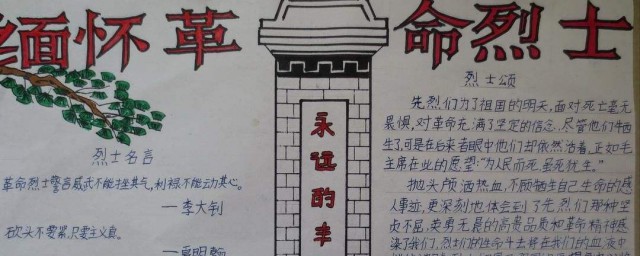 缅怀革命烈士
烈士名言
革命烈士誓言威武不能挫其气，利禄不能动其心。
——李大钊
砍头不要紧，只要主义真。
——夏明翰
永远的丰
烈士颂
先烈们为了祖国的明天，面对死亡毫无
畏惧，对革命充满了坚定的信念。尽管他们牺
生了，可是在后来者眼中他们却依然活着，正如毛
主席在此的愿望“为人民而死，虽死犹生。”
抛头颅洒热血，不顾牺生自己生命的感
人事迹，更深刻地体会到了先烈们那种坚
贞不屈，英勇无畏的高贵品质和革命精神感
染了我们，烈士们的生命斗去将在我们的血液中